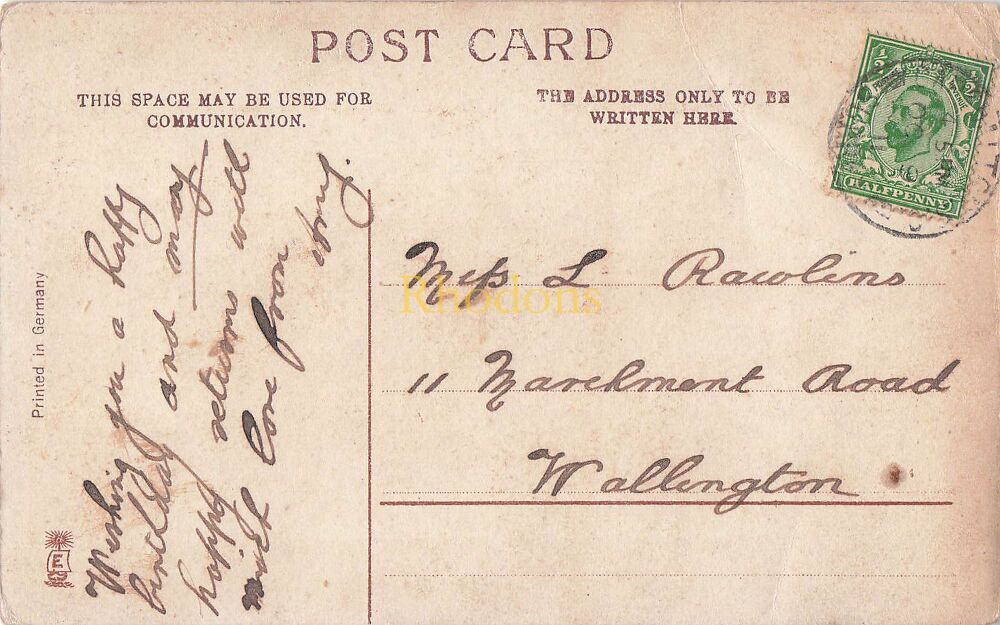 POST CARD
THIS SPACE MAY BE USED FOR
COMMUNICATION.
THE ADDRESS ONLY TO BE
WRITTEN HERE.
½ ½
HALFPENNY
Printed in Germany
E
Wishing you a happy
birthday and may
happy returns with
much love from
Amy.
Miss L Rawlins
11 Marchmont Road
Wallington
Rhodons